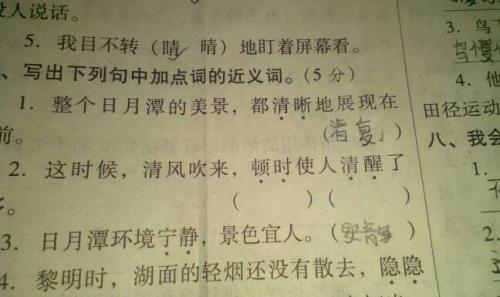 没人说话。
5. 我目不转（睛 晴）地盯着屏幕看。
、写出下列句中加点词的近义词。(5 分)
1. 整个日月潭的美景，都清晰地展现在
前。
2. 这时候，清风吹来，顿时使人清醒了
（ ）（ ）
多。
3. 日月潭环境宁静，景色宜人。（安静）
4. 黎明时，湖面的轻烟还没有散去，隐隐
3. 鸟
4. 他
田径运动
八、我会
1.
2.